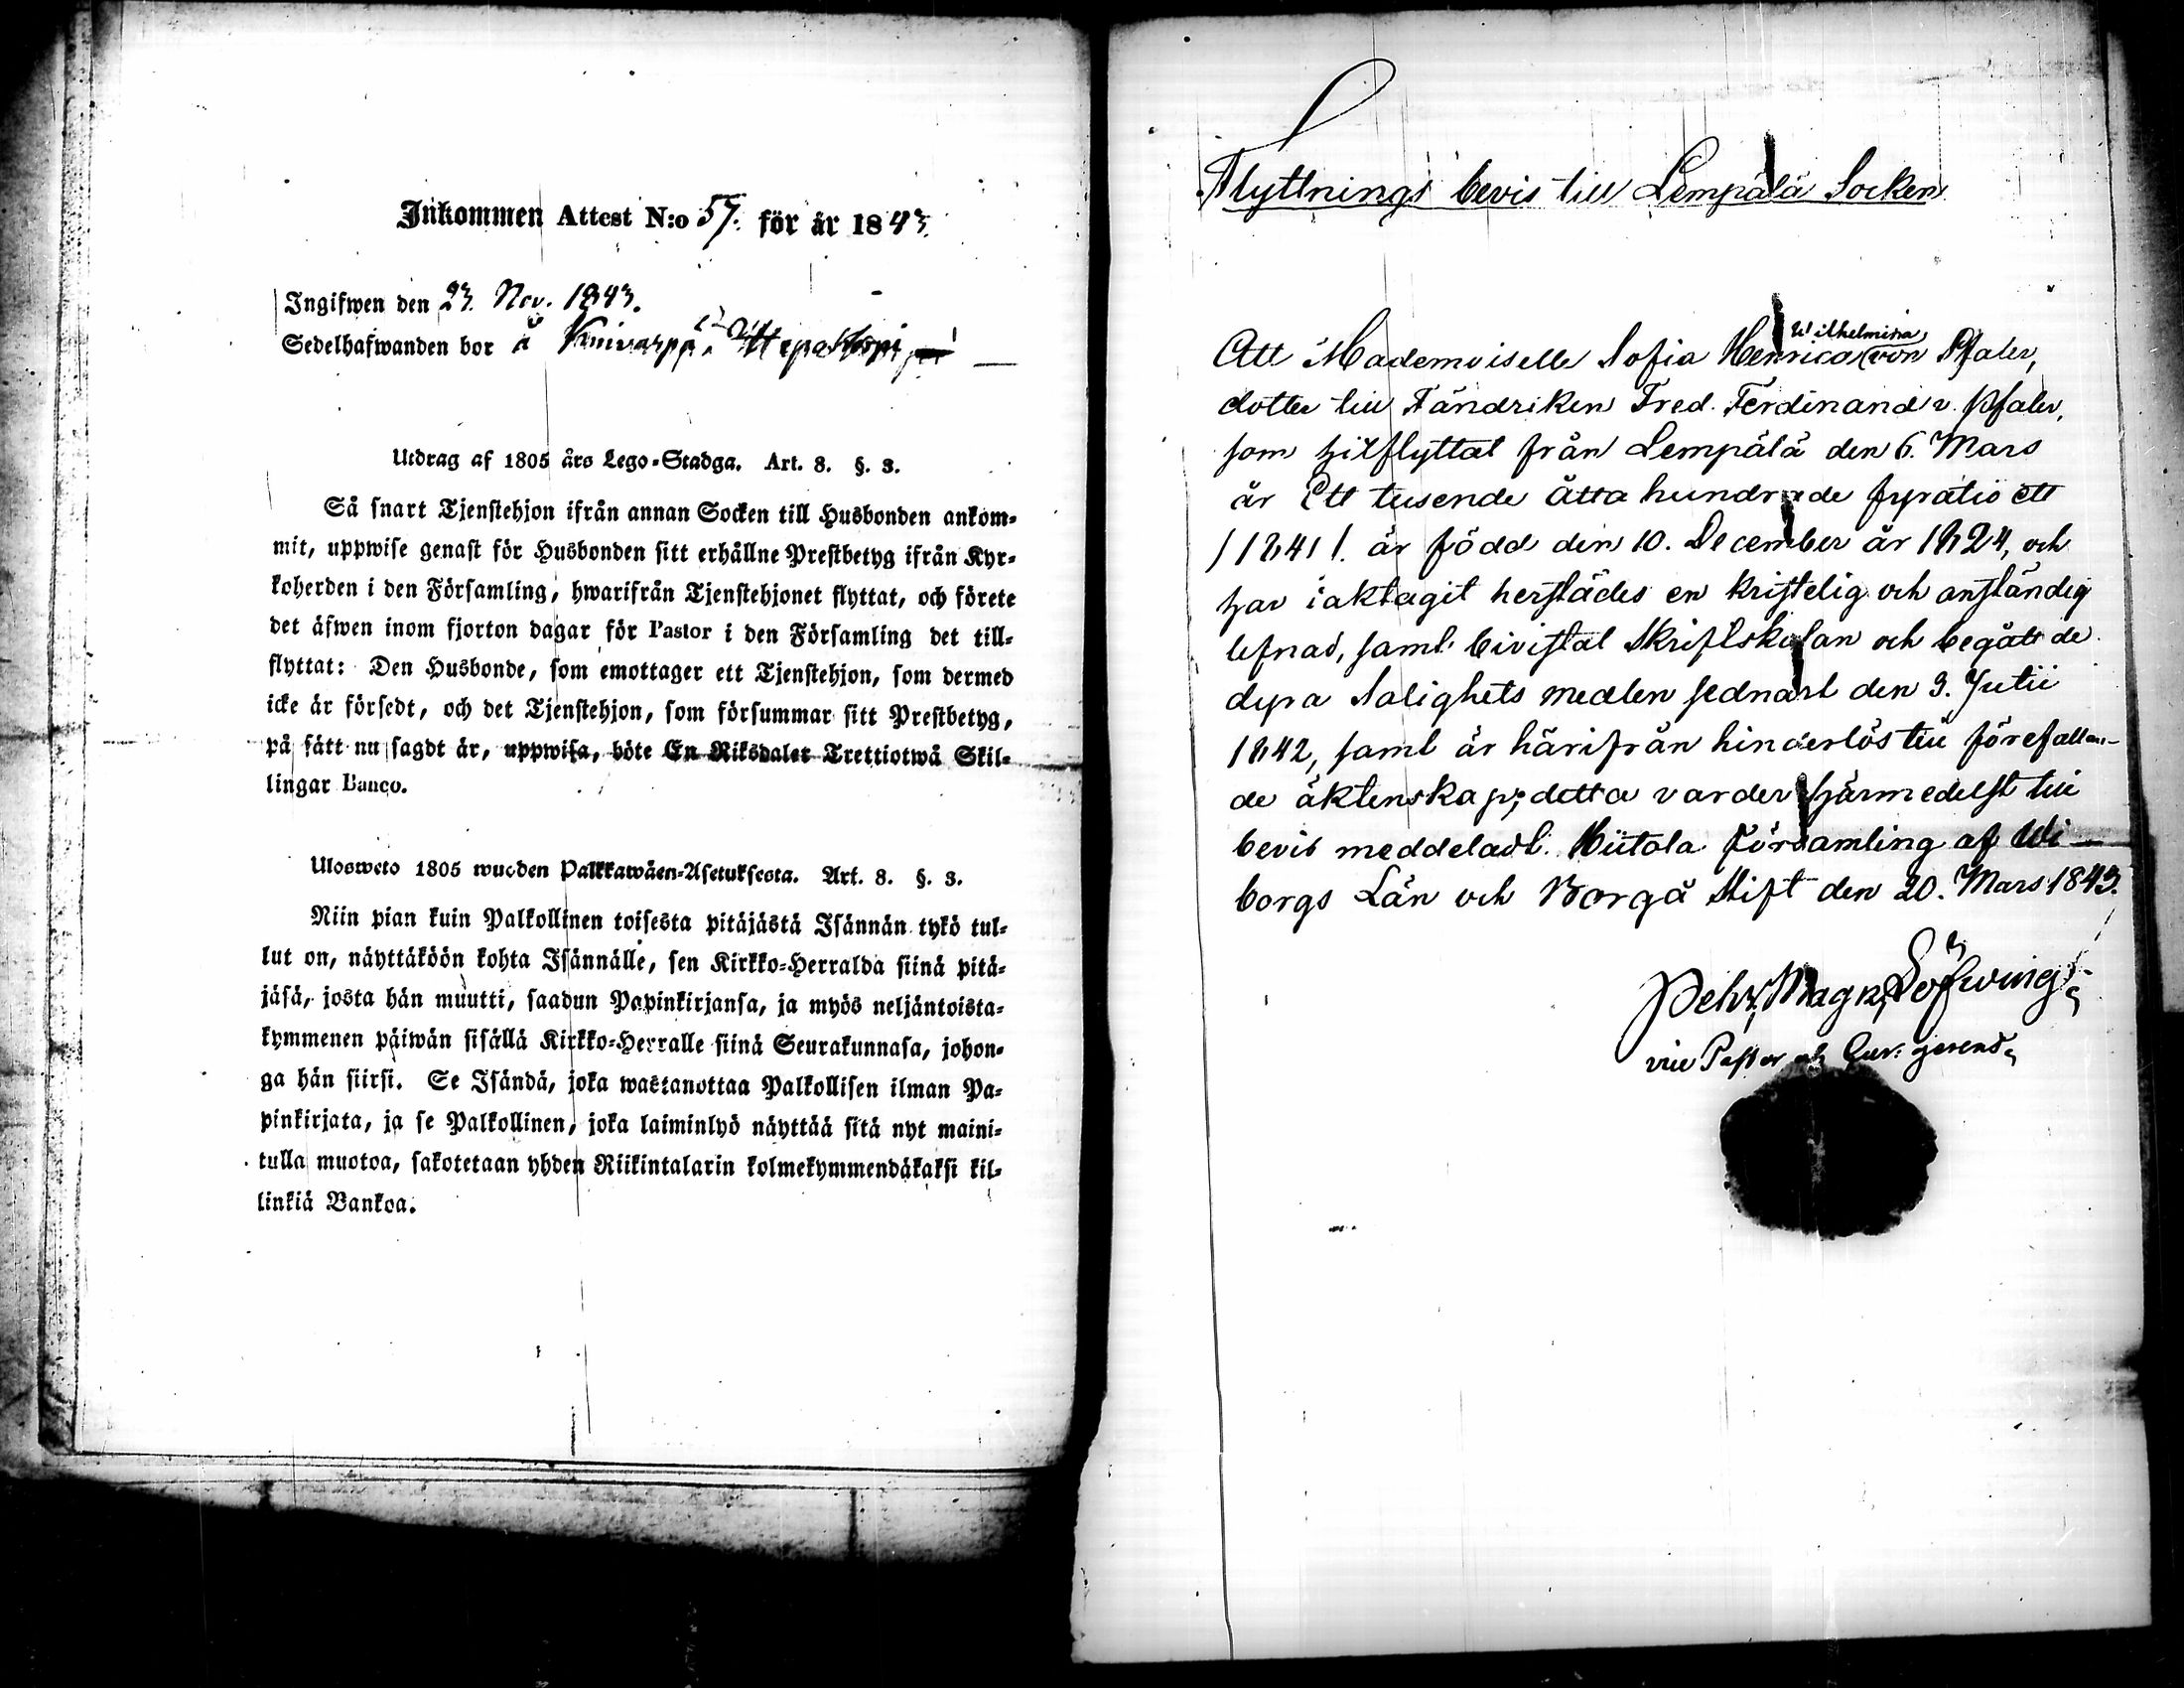 Inkommen Attest N:o 57. för år 1843.
Ingifwen den 23. Nov. 1843.
Sedelhafwanden bor å
Utdrag af 1805 års Lego-Stadga. Art. 8. §. 3.
Så snart Tjenstehjon ifrån annan Socken till Husbonden ankom-
mit, uppwise genast för Husbonden sitt erhållne Prestbetyg ifrån Kyr-
koherden i den Församling, hwarifrån Tjenstehjonet flyttat, och förete
det äfwen inom fjorton dagar för Pastor i den Församling det till-
flyttat: Den Husbonde, som emottager ett Tjenstehjon, som dermed
icke är försedt, och det Tjenstehjon, som försummar sitt Prestbetyg,
på sätt nu sagdt är, uppwisa, böte En Riksdaler Trettiotwå Skil-
lingar Banco.
Ulosweto 1805 wuoden Palkkawäen-Asetuksesta. Art. 8. §. 3.
Niin pian kuin Palkollinen toisesta pitäjästä Isännän tykö tul-
lut on, näyttäköön kohta Isännälle, sen Kirkko-Herralda siinä pitä-
jäsä, josta hän muutti, saadun Papinkirjansa, ja myös neljäntoista-
kymmenen päiwän sisällä Kirkko-Herralle siinä Seurakunnasa, johon-
ga hän siirsi. Se Isändä, joka wastanottaa Palkollisen ilman Pa-
pinkirjata, ja se Palkollinen, joka laiminlyö näyttää sitä nyt maini-
tulla muotoa, sakotetaan yhden Riikintalarin kolmekymmendäkaksi kil-
linkiä Bankoa.
Flyttnings bevis till Lempälä Socken
Att Mademoiselle Sofia Henrica Wilhelmina von Pfaler,
dotter till Fändriken Fred. Ferdinand v. Pfaler,
som hitflyttat från Lempälä den 6. Mars
år Ett tusende åtta hundrade fyratio ett
/1841/. är född den 10. December år 1824, och
har iakttagit herstädes en kristelig och anständig
lefnad, samt bivistat Skriftskolan och begått de
dyra Salighets medlen sednast den 3. Julii
1842, samt är härifrån hinderlös till förefallan-
de äktenskap; detta varder härmedelst till
bevis meddeladt. Hiitola Församling af Wi-
borgs Län och Borgå Stift den 20. Mars 1843.
Pehr Magn. Löfwing
vice Pastor